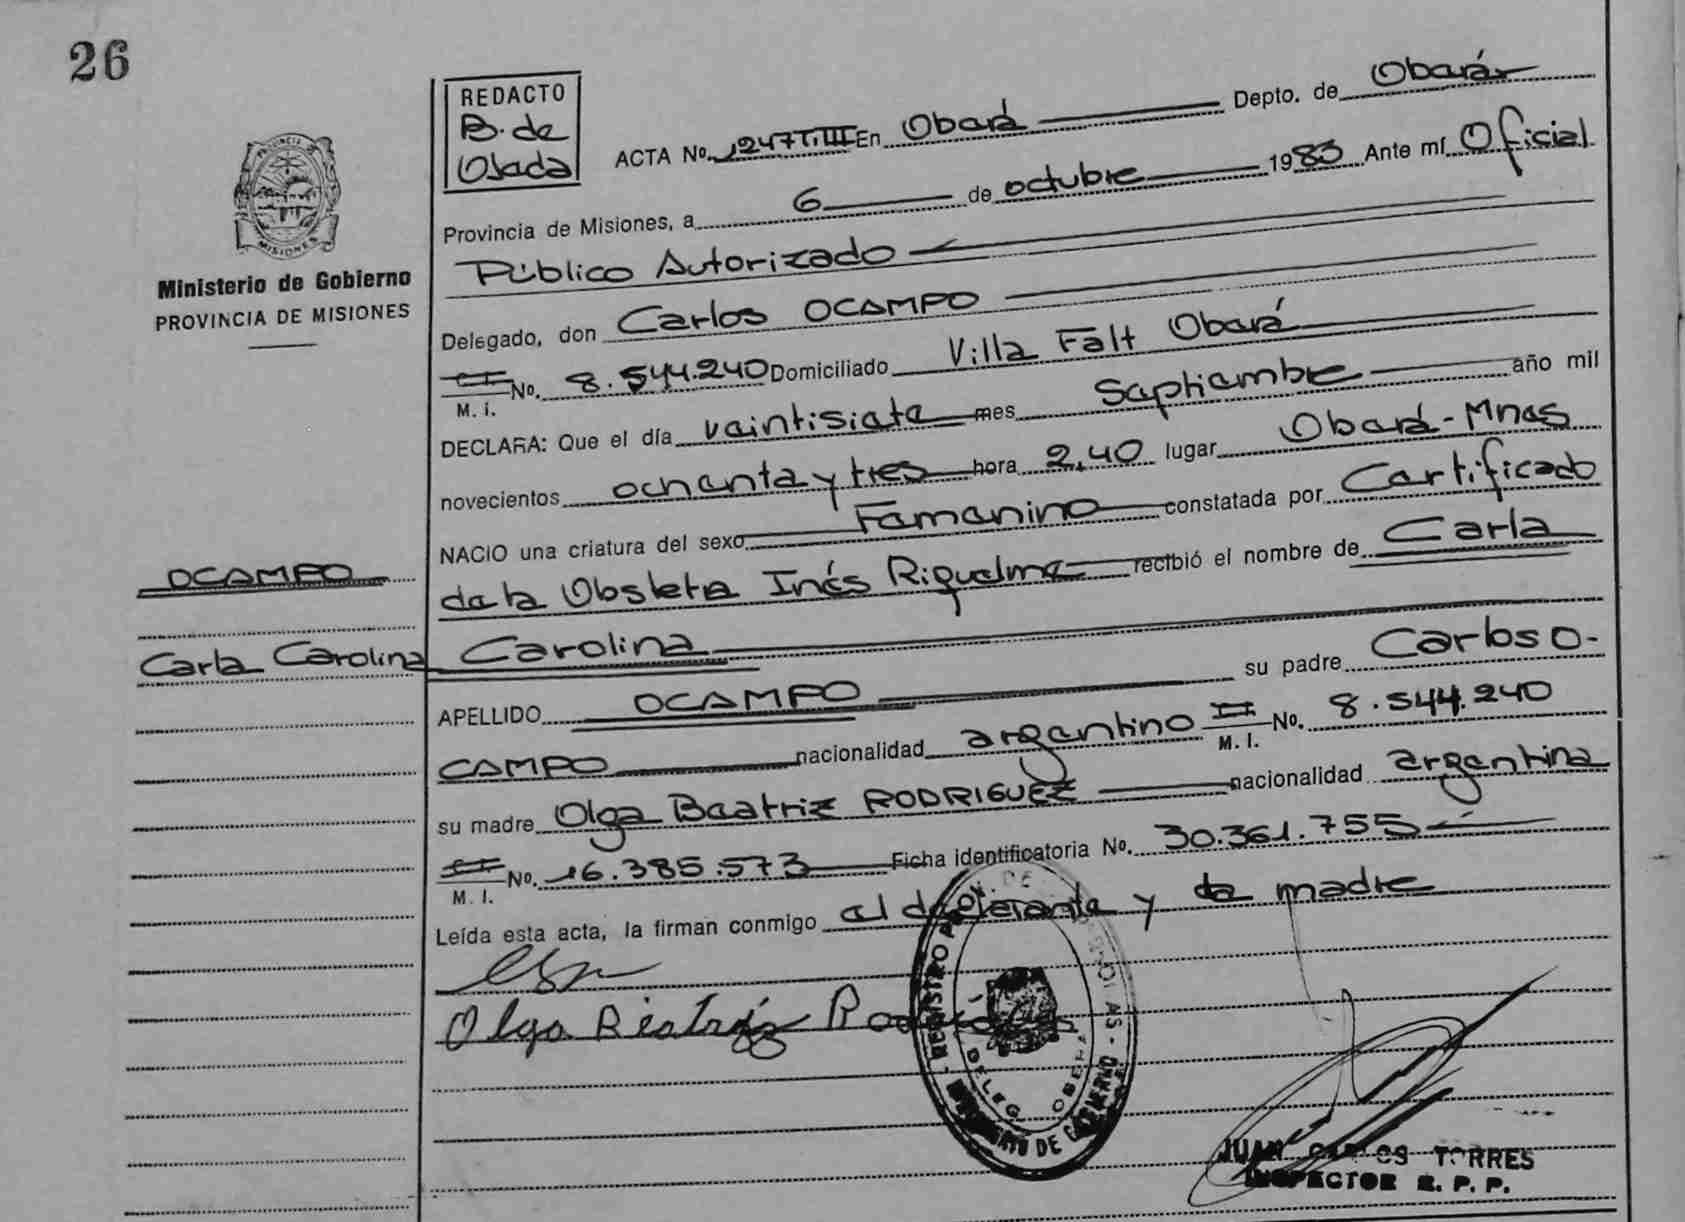 26
REDACTO
B. de
Ojeda
ACTA No. 1247 T. III En Oberá Depto. de Oberá
Provincia de Misiones, a 6 de octubre 1983 Ante mí Oficial
Público Autorizado
Delegado, don Carlos OCAMPO
No. 8.544.240 Domiciliado Villa Falt Oberá
M. I.
DECLARA: Que el día veintisiete mes Septiembre año mil
novecientos ochenta y tres hora 2,40 lugar Oberá - Mnes
NACIO una criatura del sexo Femenino constatada por Certificado
de la Obstetra Inés Riquelme recibió el nombre de Carla
Carolina
APELLIDO OCAMPO su padre Carlos O-
CAMPO nacionalidad argentino M. I. No. 8.544.240
su madre Olga Beatriz RODRIGUEZ nacionalidad argentina
No. 16.385.573 Ficha identificatoria No. 30.361.755
M. I.
Leída esta acta, la firman conmigo el declarante y la madre
Olga Beatriz
MISIONES
Ministerio de Gobierno
PROVINCIA DE MISIONES
OCAMPO
Carla Carolina
REGISTRO DE LAS
MINISTERIO DE GOBIERNO
DELEG OBERA
JUAN CARLOS TORRES
INSPECTOR R. P. P.